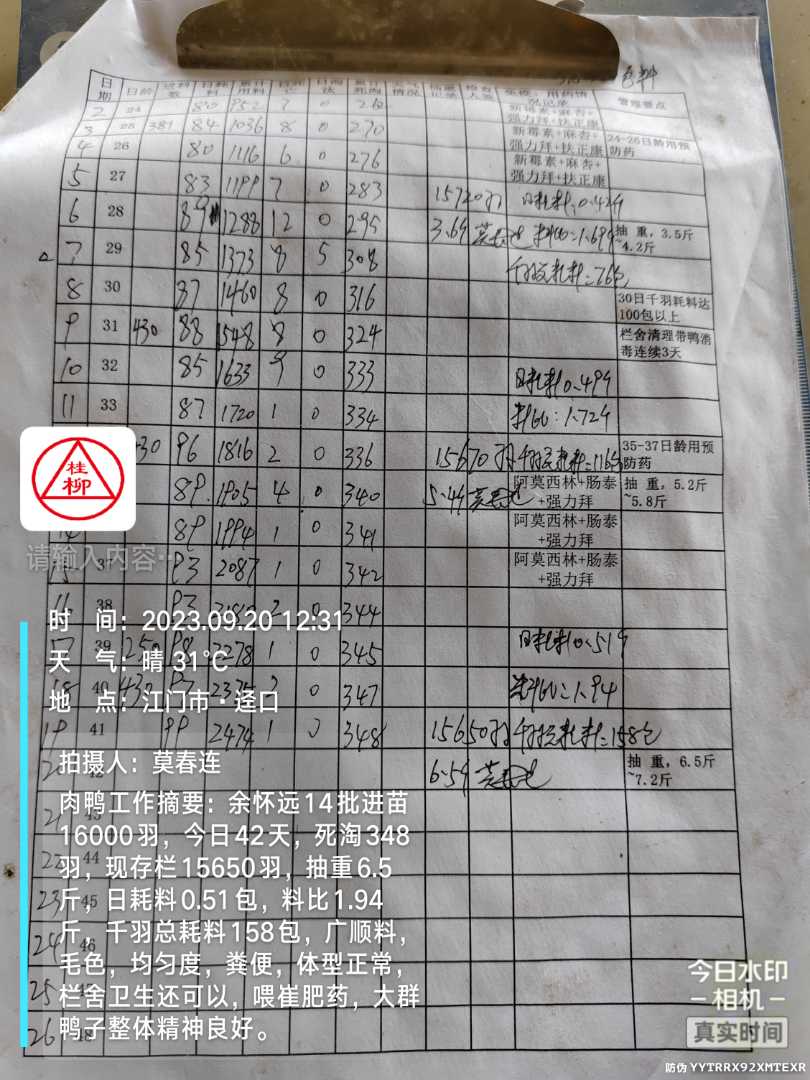 包料
日期 日龄 进料数 日耗料 累计用料 日死亡 日淘汰 累计死淘 天气情况 抽重记录 检查人员 免疫、用药情况记录 管理要点
2 24 80 952 7 0 262 新霉素+麻杏+强力拜+扶正康
3 25 381 84 1036 8 0 270 新霉素+麻杏+强力拜+扶正康 24-26日龄用预防药
4 26 80 1116 6 0 276 新霉素+麻杏+强力拜+扶正康
5 27 83 1199 7 0 283 15720羽 日耗料:0.42包
6 28 89 1288 12 0 295 3.6斤 莫春连 料比:1.69 抽 重，3.5斤~4.2斤
7 29 85 1373 8 5 308 千羽总耗料=76包
8 30 87 1460 8 0 316 30日千羽耗料达100包以上
9 31 430 88 1548 8 0 324 栏舍清理带鸭消毒连续3天
10 32 85 1633 9 0 333 日耗料0.49包
11 33 87 1720 1 0 334 料比:1.72
430 96 1816 2 0 336 15670羽 千羽总耗料=116包 35-37日龄用预防药
89 1905 4 0 340 5.4斤 莫春连 阿莫西林+肠泰+强力拜 抽 重，5.2斤~5.8斤
14 89 1994 1 0 341 阿莫西林+肠泰+强力拜
15 37 93 2087 1 0 342 阿莫西林+肠泰+强力拜
38 93 0 344
17 39 250 98 2278 1 0 345 日耗料0.51包
18 40 430 97 2375 2 0 347 料比=1.94
19 41 99 2474 1 0 348 15650羽 千羽总耗料=158包
20 42 6.5斤 莫春连 抽 重，6.5斤~7.2斤
21 43
22 44
23 45
24 46
25
26 48
桂柳
请输入内容…
时 间：2023.09.20 12:31
天 气：晴 31℃
地 点：江门市·迳口
拍摄人：莫春连
肉鸭工作摘要：余怀远14批进苗
16000羽，今日42天，死淘348
羽，现存栏15650羽，抽重6.5
斤，日耗料0.51包，料比1.94
斤，千羽总耗料158包，广顺料，
毛色，均匀度，粪便，体型正常，
栏舍卫生还可以，喂崔肥药，大群
鸭子整体精神良好。
今日水印
相机
真实时间
防伪 YYTRRX92XMTEXR